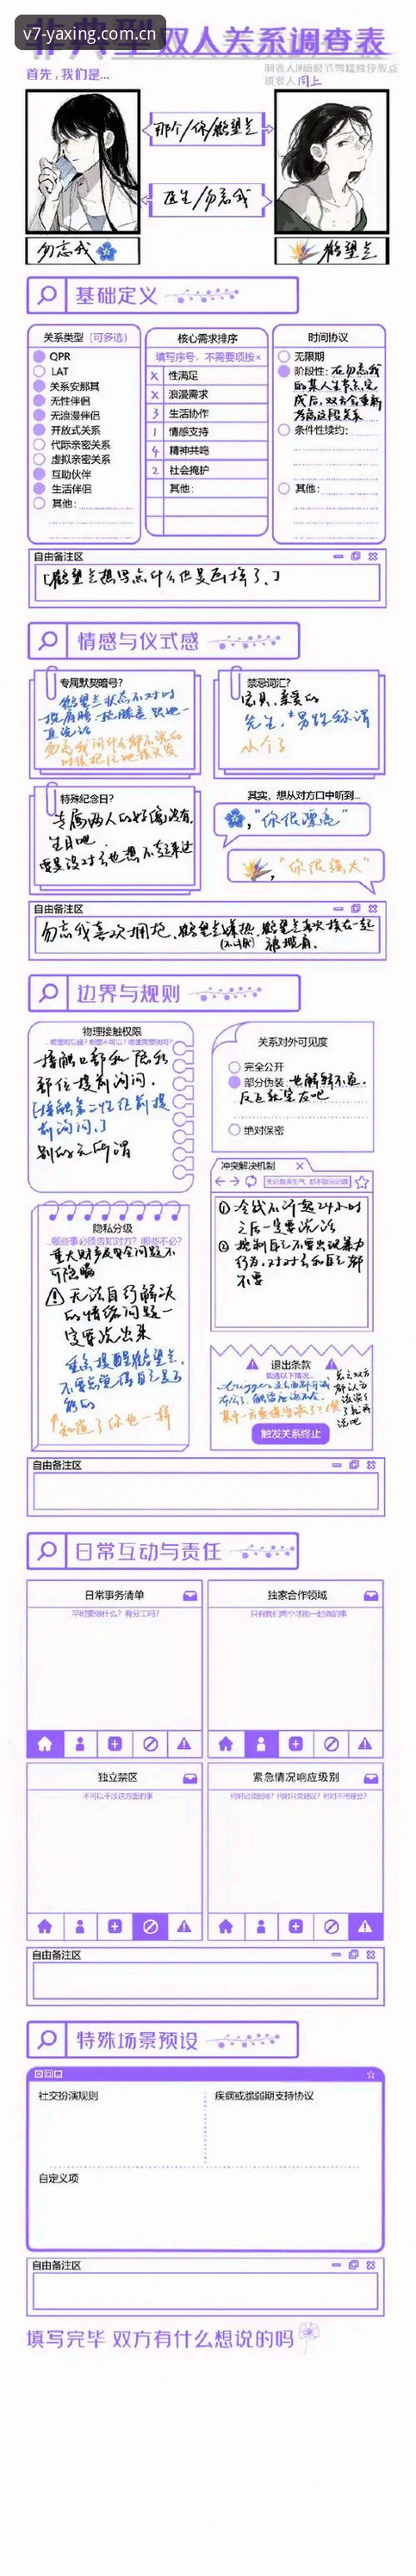 v7-yaxing.com.cn
非典型双人关系调查表
首先，我们是...
填表人 同上
那个/你/鹤望兰
医生/勿忘我
勿忘我
鹤望兰
基础定义
关系类型（可多选）
QPR
LAT
关系安那其
无性伴侣
无浪漫伴侣
开放式关系
代际亲密关系
虚拟亲密关系
互助伙伴
生活伴侣
其他：
核心需求排序
填写序号，不需要项按×
X 性满足
X 浪漫需求
3 生活协作
1 情感支持
4 精神共鸣
2 社会掩护
其他：
时间协议
无限期
阶段性：在勿忘我
的某人生节点完
成后，双方会重新
考虑这段关系
条件性续约：
其他：
自由备注区
[鹤望兰想写点什么但是画掉了。]
情感与仪式感
专属默契暗号？
鹤望兰状态不对时
直说话
勿忘我问什么都不说的
时候把住她摸头发
禁忌词汇？
宝贝，亲爱的
先生，*男性称谓
小个子
特殊纪念日？
专属两人的好像没有，
生日吧
要是没对方也想不起来过
其实，想从对方口中听到...
，"你很漂亮"
，"你很强大"
自由备注区
勿忘我喜欢拥抱，鹤望兰嫌热，鹤望兰喜欢挨在一起
被摸肩。
边界与规则
物理接触权限
哪里可以碰？哪里不可以？哪里需要询问？
接触口部和隐私
部位提前询问，
[接触第二性征前提
前询问。]
别的无所谓
关系对外可见度
完全公开
部分伪装：也解释不通，
反正就室友吧
绝对保密
冲突解决机制
① 冷战不许超24小时
之后一定要说话
② 控制自己不要出现暴力
行为，对对方和自己都
不要
隐私分级
哪些事必须告知对方？哪些不必？
重大财务及安全问题不
可隐瞒
无法自行解决
的情绪问题一
定要说出来
重点提醒鹤望兰，
不要总觉得自己是万
能的
↑知道了你也一样
退出条款
如遇以下情况...
触发关系终止
自由备注区
日常互动与责任
日常事务清单
平时要做什么？有分工吗？
独家合作领域
只有我们两个才能一起做的事
独立禁区
不可以干涉这方面的事
紧急情况响应级别
自由备注区
特殊场景预设
社交扮演规则
疾病或脆弱期支持协议
自定义项
自由备注区
填写完毕 双方有什么想说的吗